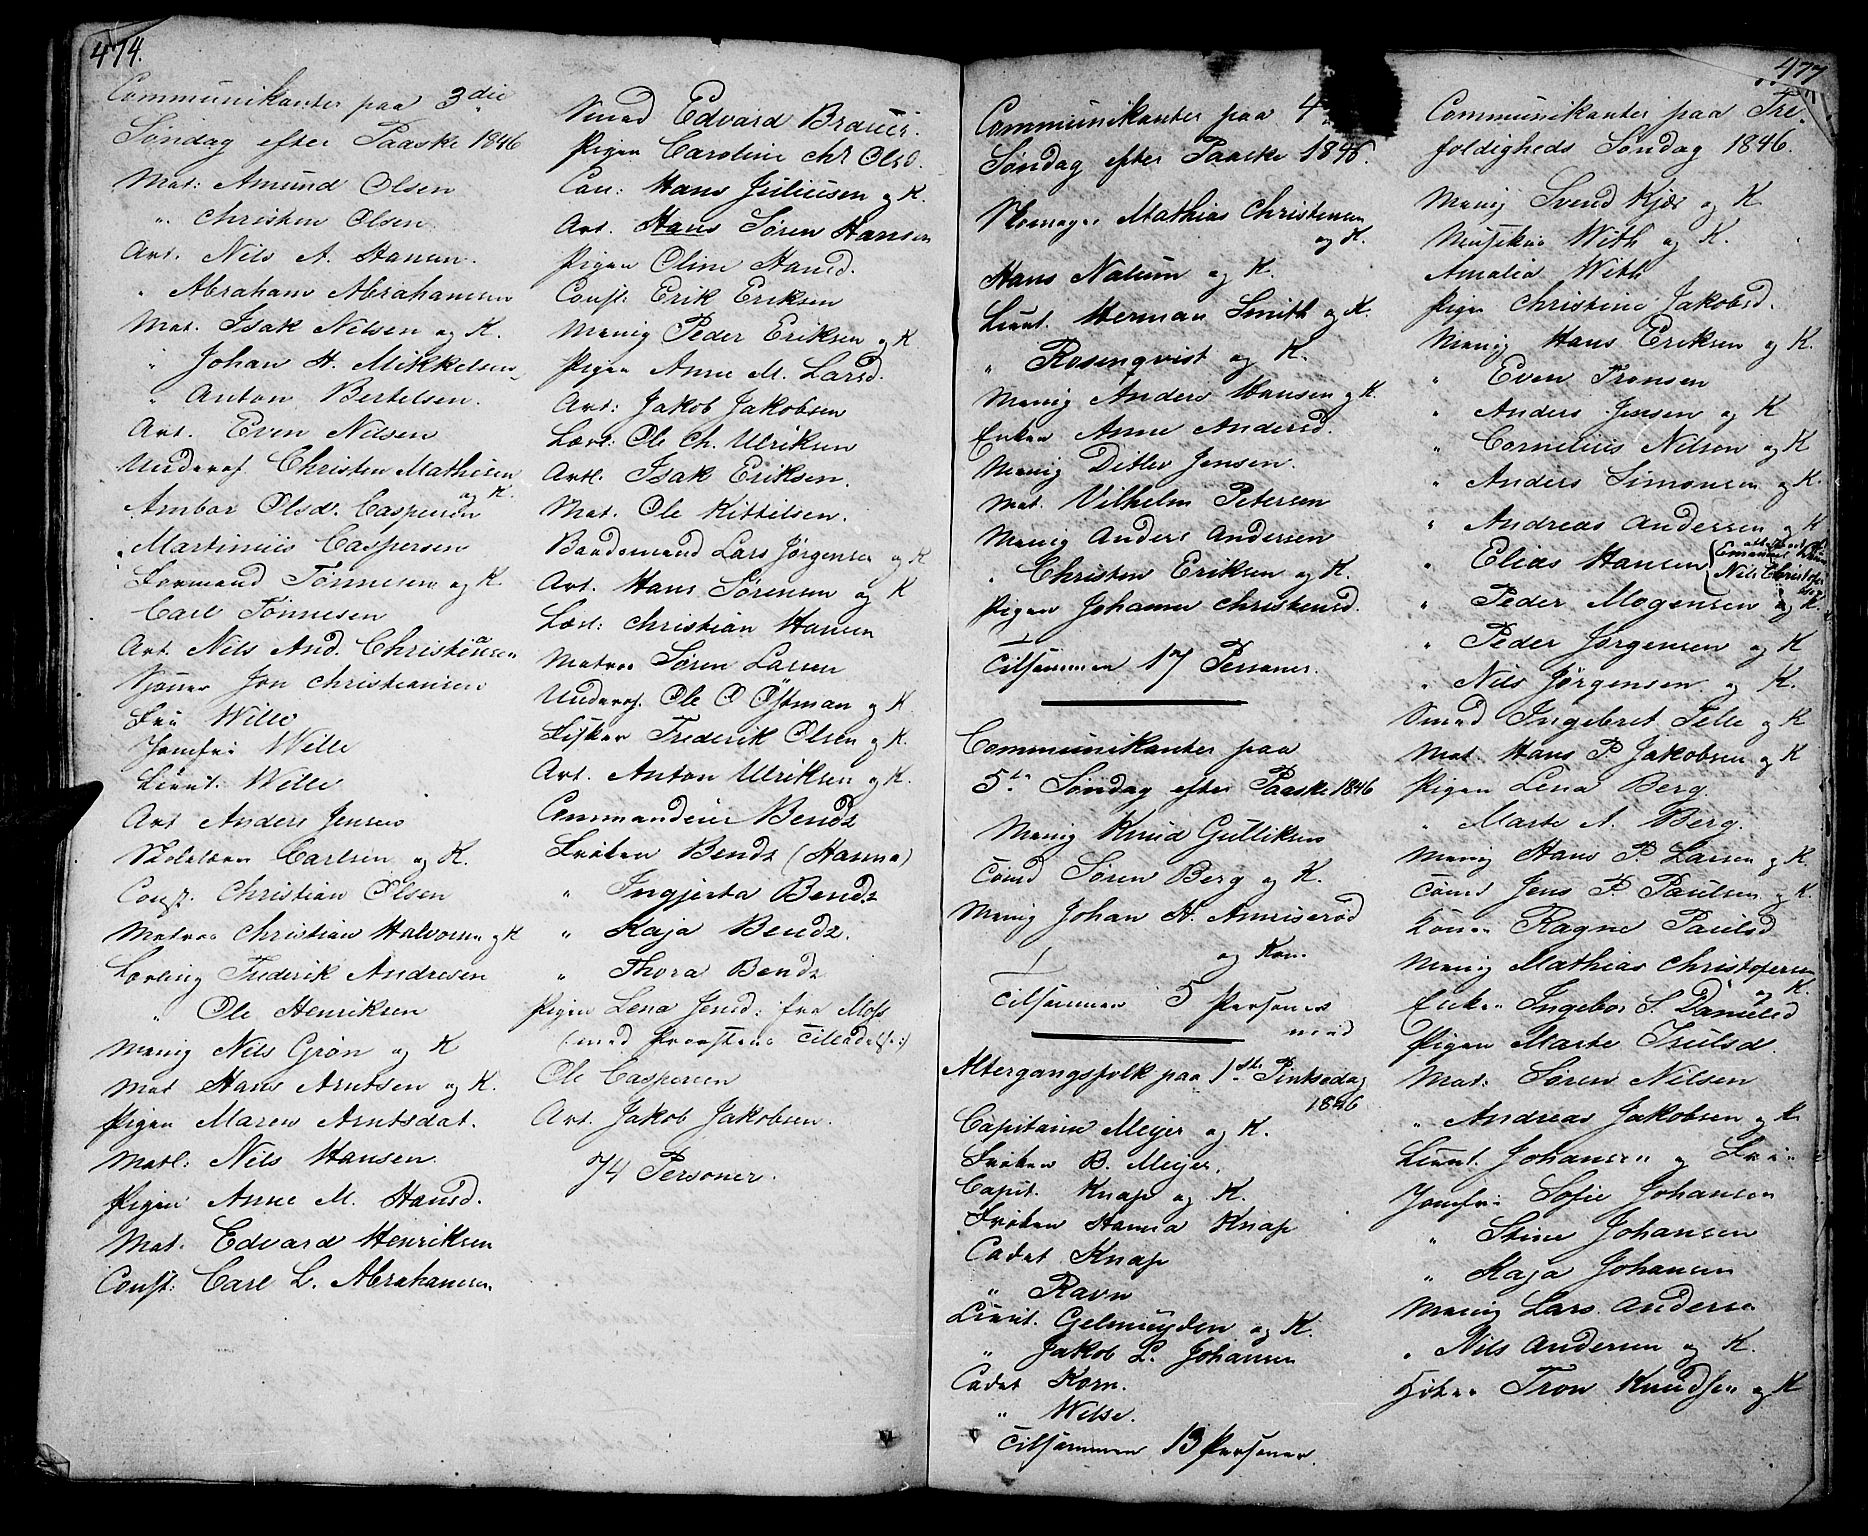 474.
Communikanter paa 3die
Søndag efter Paaske 1846
Mat: Amund Olsen
" Christen Olsen
Art. Nils A. Hansen.
" Abraham Abrahamsen
Mat. Isak Nilsen og K.
" Johan H. Mikkelsen
" Anton Bertelsen.
Art. Even Nilsen
Underof. Christen Mathisen
og K.
Ambor Olsd. Caspersen
Martinius Caspersen
Formand Tønnesen og K.
Carl Tønnesen
Art. Nils And. Christiansen
Jon Christiansen
Fru Wille
Jomfru Wille
Lieut: Wille
Art Anders Jensen
Skolelærer Carlsen og K.
Const. Christian Olsen
Matros Christian Halvorsen og K
Lærling Frederik Andresen
" Ole Henriksen
Menig Nils Grøn og K
Mat Hans Arntsen og K.
Pigen Maren Arntsdat.
Matl: Nils Hansen
Pigen Anne M. Hansd.
Mat. Edvard Henriksen
Const: Carl L. Abrahamsen
Smed Edvard Brauer.
Pigen Caroline Chr Olsd.
Can: Hans Juliusen og K.
Art. Hans Søren Hansen
Pigen Oline Hansd.
Const: Erik Eriksen
Menig Peder Eriksen og K
Pigen Anne M. Larsd.
Art: Jakob Jakobsen
Lærl: Ole Ch. Ulriksen
Artl: Isak Eriksen.
Mat. Ole Kittilsen.
Baadsmand Lars Jørgensen og K
Art. Hans Sørensen og K
Lærl: Christian Hansen
Matros Søren Larsen
Underof. Ole O Østman og K
Fisker Frederik Olsen og K.
Art. Anton Ulriksen og K.
Commandeur Bendz
Frøken Bendz (Hanna)
" Ingjerta Bendz
" Kaja Bendz.
" Thora Bendz
Pigen Lena Jensd: fra Moss
(med Præstens Tilladelse:)
Ole Caspersen
Art. Jakob Jakobsen.
74 Personer.
477
Communikanter paa 4
Søndag efter Paaske 1846.
Mathias Christensen
og K.
Hans Natum og K.
Lieut. Herman Smith og K.
" Rosenqvist og K.
Menig Anders Hansen og K.
Enken Anne Andersd.
Menig Ditlev Jensen.
Mat. Vilhelm Petersen
Menig Anders Andersen
" Christen Eriksen og K.
Pigen Johanne Christensd.
Tilsammen 17 Personer.
Communikanter paa
5te Søndag efter Paaske 1846
Menig Knud Gulliksen
Tømd Søren Berg og K.
Menig Johan H. Amriserød
og Kon.
Tilsammen 5 Personer
Altergangsfolk paa 1ste Pintsedag
1846
Capitain Meijer og K.
Frøken B. Meijer.
Capit. Knap og K.
Frøken Hanna Knap
Cadet Knap
" Ravn
Lieut. Gelmuyden og K.
" Jakob L. Johansen
Cadet Korn.
" Wilse.
Tilsammen 13 Personer.
Communikanter paa Tre-
foldigheds Søndag 1846.
Menig Svend Kjær og K
Musikus With og K.
Amalia With
Pigen Christine Jakobsd.
Menig Hans Eriksen og K
" Even Tronsen
" Anders Jensen og K
" Cornelius Nilsen og K
" Anders Simonsen og K.
" Andreas Andersen og K
" Elias Hansen
Nils Christofersen
" Peder Mogensen og K.
" Peder Jørgensen og K
" Nils Jørgensen og K.
Smed Ingebret Jelle og K
Mat. Hans P Jakobsen og K
Pigen Lena Berg.
" Marte A. Berg.
Menig Hans P. Larsen og K
Tømd Jens P. Paulsen og K.
Konen Ragne Paulsd
Menig Mathias Christofersen
og K.
Enken Ingebor S. Danielsd
Pigen Marte Trulsd.
Mat: Søren Nilsen
" Andreas Jakobsen og K
Lieut. Johansen og Fru
Jomfru Sofie Johansen
" Stine Johansen
" Kaja Johansen
Menig Lars Andersen
" Nils Andersen og K.
Tron Knudsen og K